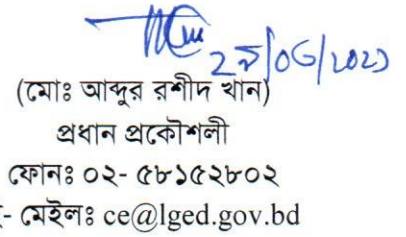 (মোঃ আব্দুর রশীদ খান)
প্রধান প্রকৌশলী
ফোনঃ ০২- ৫৮১৫২৮০২
- মেইলঃ ce@lged.gov.bd